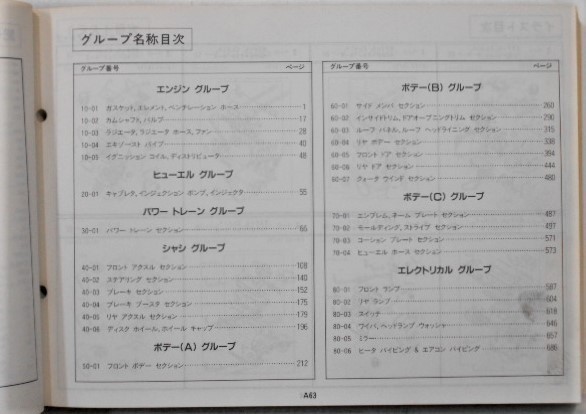 グループ名称目次
グループ番号 ページ
エンジン グループ
10-01 ガスケット,エレメント,ベンチレーション ホース 1
10-02 カムシャフト,バルブ 17
10-03 ラジエータ,ラジエータ ホース,ファン 28
10-04 エキゾースト パイプ 40
10-05 イグニッション コイル,ディストリビュータ 48
ヒューエル グループ
20-01 キャブレタ,インジェクション ポンプ,インジェクタ 55
パワー トレーン グループ
30-01 パワー トレーン セクション 65
シャシ グループ
40-01 フロント アクスル セクション 108
40-02 ステアリング セクション 140
40-03 ブレーキ セクション 152
40-04 ブレーキ ブースタ セクション 175
40-05 リヤ アクスル セクション 179
40-06 ディスク ホイール,ホイール キャップ 196
ボデー(A) グループ
50-01 フロント ボデー セクション 212
グループ番号 ページ
ボデー(B) グループ
60-01 サイド メンバ セクション 260
60-02 インサイドトリム,ドアオープニングトリム セクション 290
60-03 ルーフ パネル,ルーフ ヘッドライニング セクション 315
60-04 リヤ ボデー セクション 338
60-05 フロント ドア セクション 384
60-06 リヤ ドア セクション 444
60-07 クォータ ウインド セクション 480
ボデー(C) グループ
70-01 エンブレム,ネーム プレート セクション 487
70-02 モールディング,ストライプ セクション 497
70-03 コーション プレート セクション 571
70-04 ヒューエル ホース セクション 573
エレクトリカル グループ
80-01 フロント ランプ 587
80-02 リヤ ランプ 604
80-03 スイッチ 618
80-04 ワイパ,ヘッドランプ ウォッシャ 646
80-05 ミラー 657
80-06 ヒータ パイピング & エアコン パイピング 686
A63